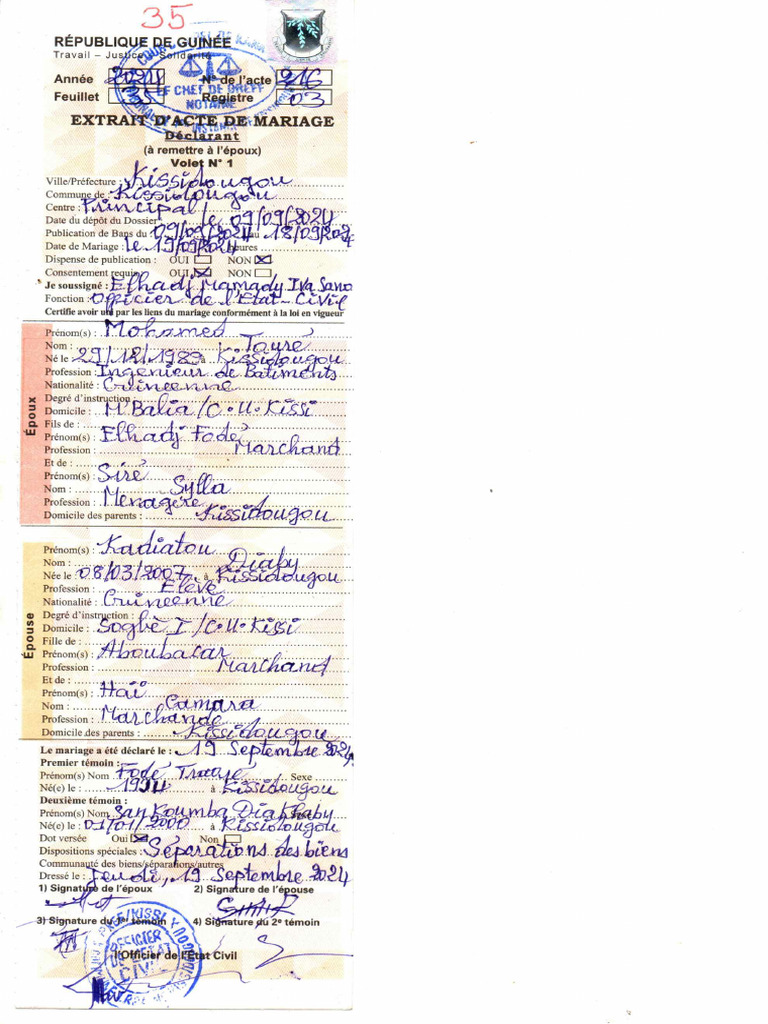 35
RÉPUBLIQUE DE GUINÉE
Travail – Justice – Solidarité
Année 2024 N° de l'acte 216
Feuillet 35 Registre 03
LE CHEF DE GREFF
NOTAIRE
EXTRAIT D'ACTE DE MARIAGE
Déclarant
(à remettre à l'époux)
Volet N° 1
Ville/Préfecture : Kissidougou
Commune de : Kissidougou
Centre : Principal
Date du dépôt du Dossier : le 09/09/2024
Publication de Bans du 09/09/2024 au 18/09/2024
Date de Mariage : le 19/09/2024 heures
Dispense de publication : OUI NON
Consentement requis OUI NON
Je soussigné : Elhadj Mamady Iva Sano
Fonction : Officier de l'Etat-Civil
Certifie avoir uni par les liens du mariage conformément à la loi en vigueur
Époux
Prénom(s) : Mohamed
Nom : Touré
Né le 29/12/1989 à Kissidougou
Profession : Ingenieur de Batiments
Nationalité : Guineenne
Degré d'instruction :
Domicile : M'Balia/C.U.Kissi
Fils de :
Prénom(s) : Elhadj Fodé
Profession : Marchand
Et de :
Prénom(s) : Siré
Nom : Sylla
Profession : Ménagère
Domicile des parents : Kissidougou
Épouse
Prénom(s) : Kadiatou
Nom : Diaby
Née le : 08/03/2007 à Kissidougou
Profession : Elève
Nationalité : Guineenne
Degré d'instruction :
Domicile : Sogbè I/C.U.Kissi
Fille de :
Prénom(s) : Aboubacar
Profession : Marchand
Et de :
Prénom(s) : Haï
Nom : Camara
Profession : Marchande
Domicile des parents : Kissidougou
Le mariage a été déclaré le : 19 Septembre 2024
Premier témoin :
Prénom(s) Nom Fodé Traoré Sexe
Né(e) le : 1994 à Kissidougou
Deuxième témoin :
Prénom(s) Nom San Koumba Diakhaby
Né(e) le : 01/01/2000 à Kissidougou
Dot versée Oui Non
Dispositions spéciales : Séparations des biens
Communauté des biens/séparations/autres
Dressé le : Jeudi, 19 Septembre 2024
1) Signature de l'époux 2) Signature de l'épouse
3) Signature du 1er témoin 4) Signature du 2e témoin
OFFICIER
DE L'ETAT
CIVIL
l'Officier de l'État Civil